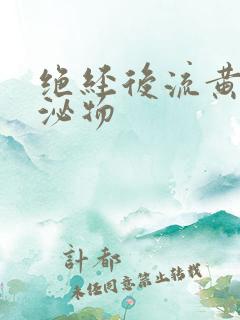 绝经後流黄
泌物
計都
未经同意禁止转载